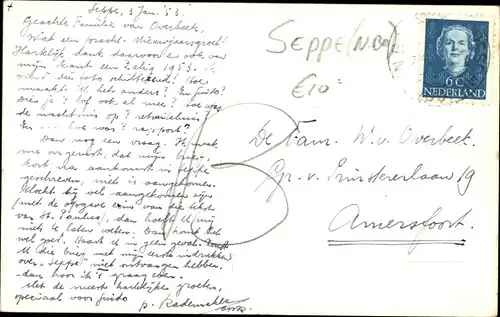 Seppe, 3 Jan. '53.
Geachte Familie van Overbeek,
Wat een pracht-Nieuwjaarsgroet!
Hartelijk dank daarvoor en ook van
mijn kant een Zalig 1953. Ik
vind die foto Hoe
maakt U het anders? En Guido?
Doe je 't lof ook al mee? Hoe was
de nachtmis op?
En ... hoe was 't rapport?
Dan nog een vraag. Ik maak
me ongerust, dat mijn brief,
kort na aankomst in Seppe
geschreven, niet is aangekomen.
Mocht hij wel aangekomen zijn
(met de opgave van de
van St. Paulus), dan hoeft U mij
niets te laten weten. Dan komt het
wel goed. Maar U in geen geval
U die brief met mijn eerste indrukken
over "Seppe" niet ontvangen hebben,
dan hoor ik 't graag even.
Met de meeste hartelijke groeten,
speciaal voor Guido
p. Rademaker
SEPPE (N.Br)
€10
6 C
NEDERLAND
De Fam. W. v. Overbeek.
Gr. v. Prinstererlaan 19
Amersfoort.